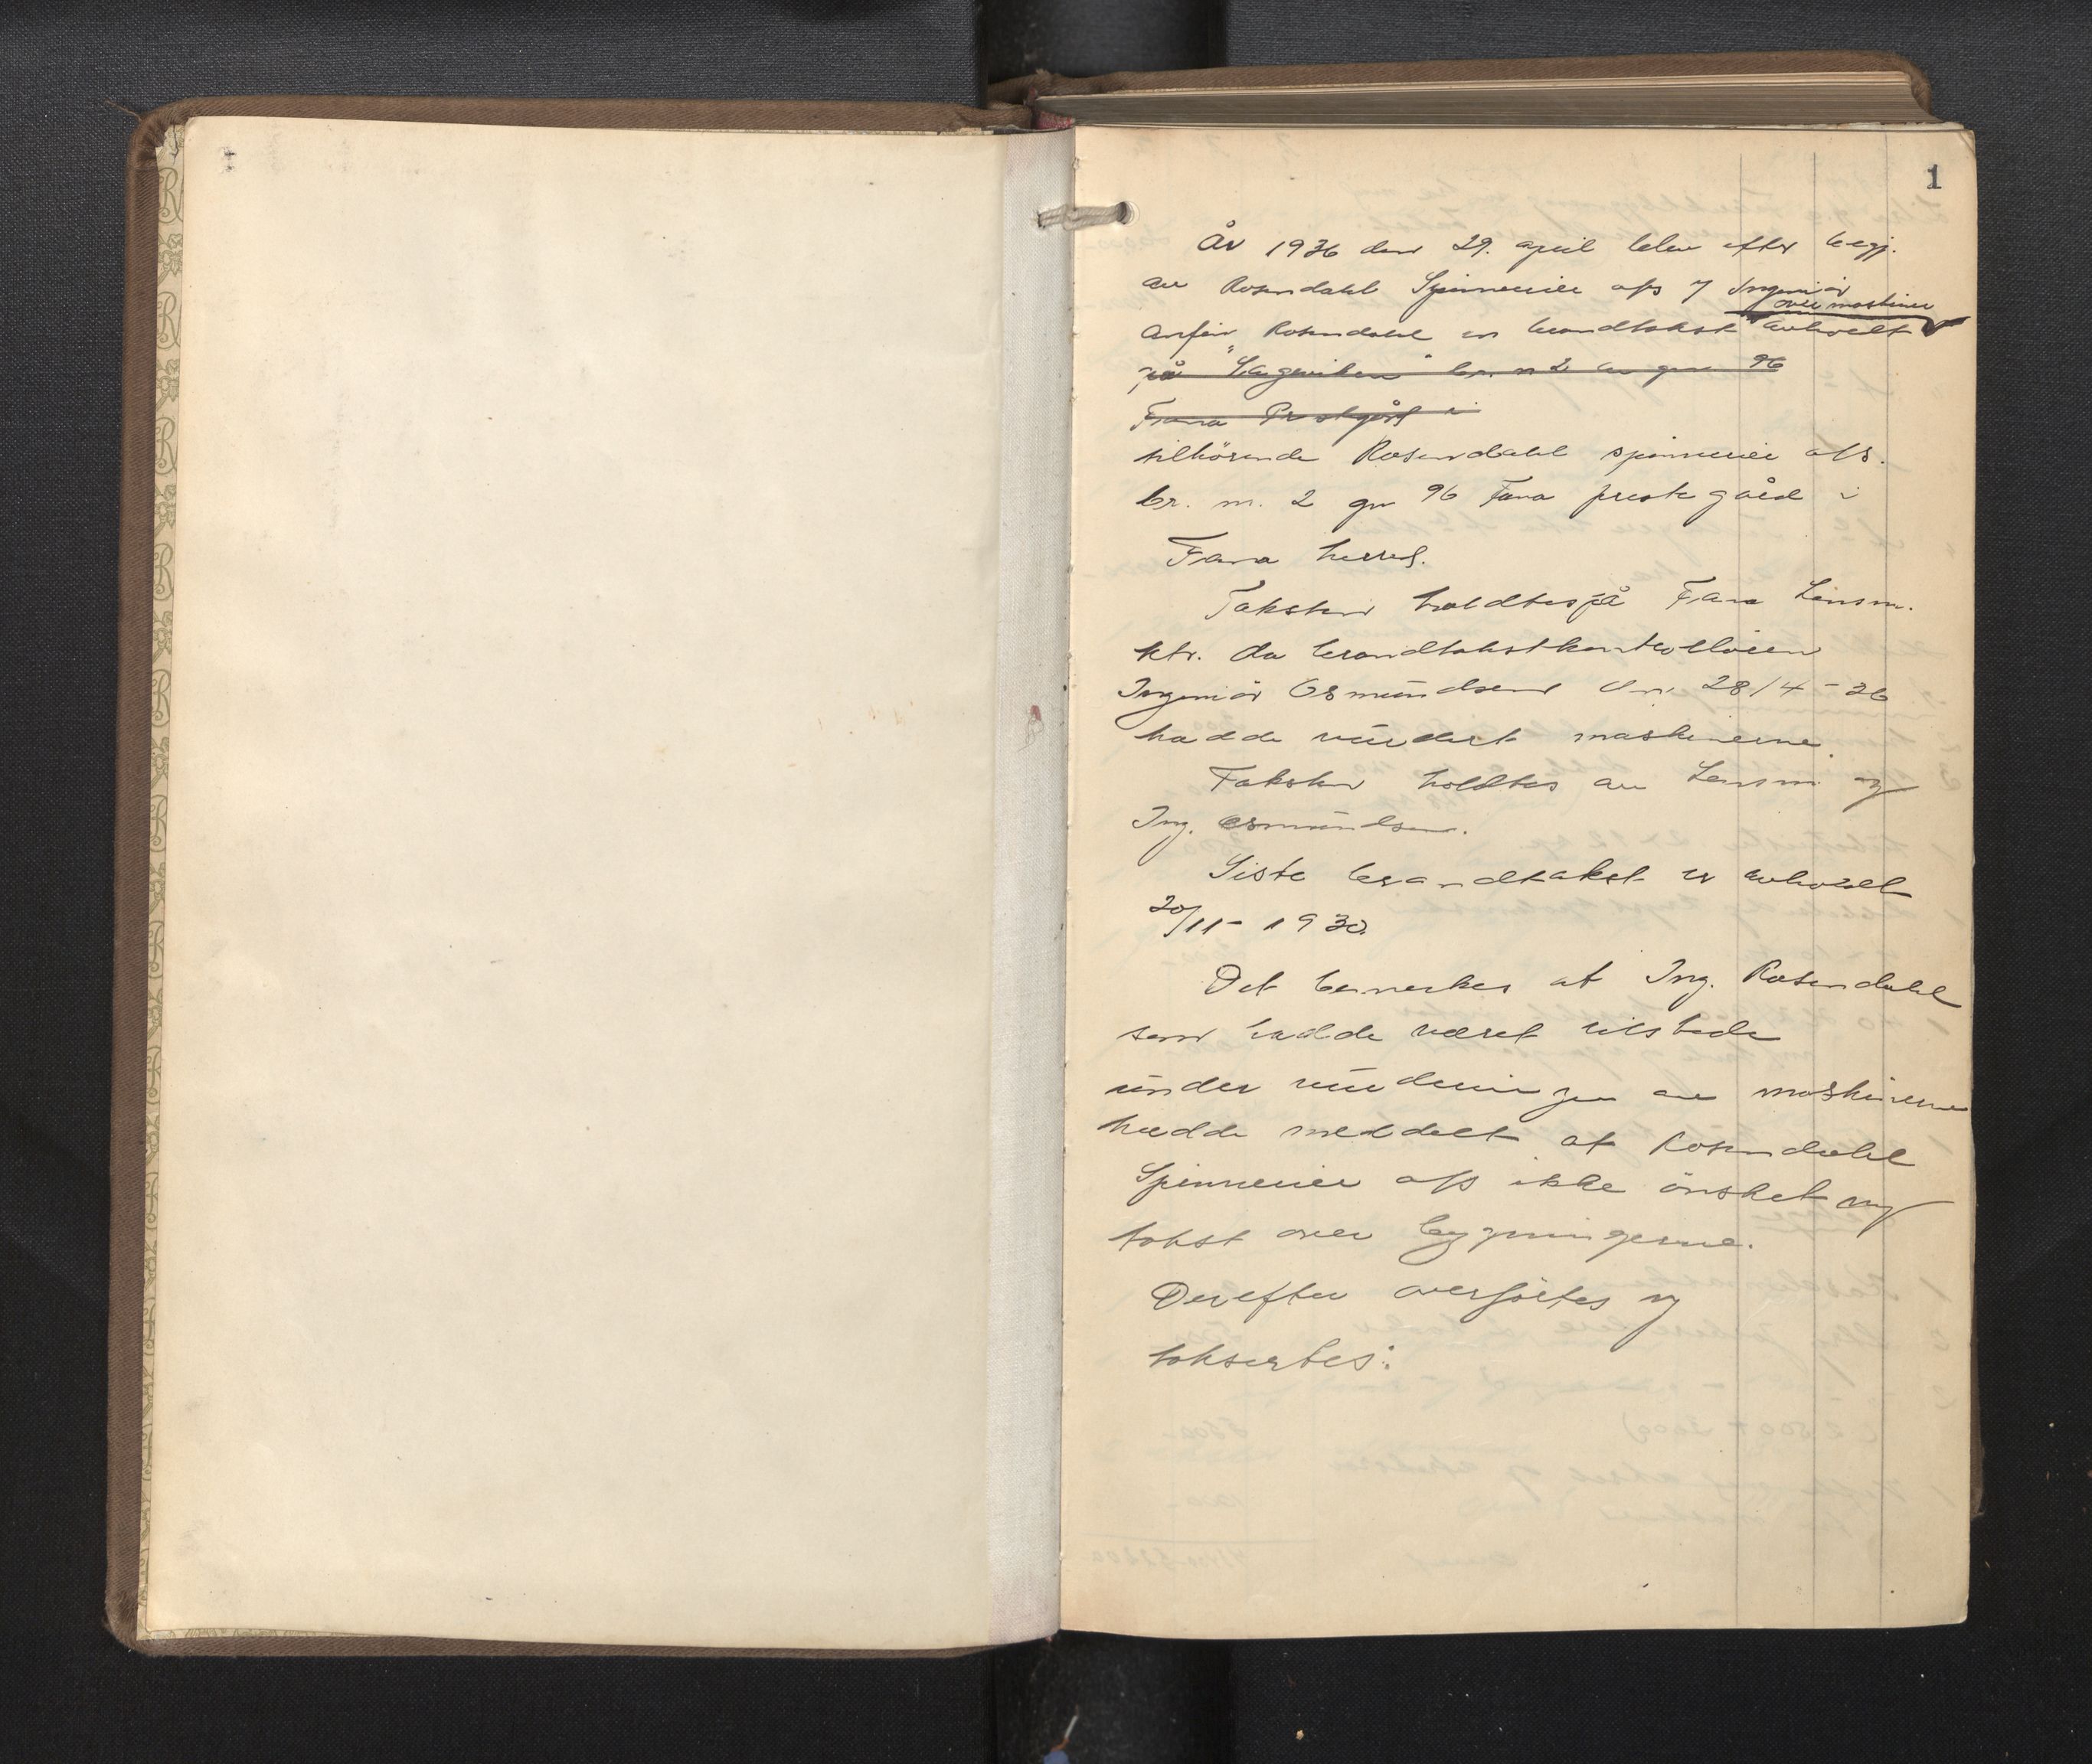 1
År 1936 den 29. april blev efter begj.
av Rosendahl Spinnerier a/s v Ingeniør
over maskiner
Rosendahl en brandtakst avholdt
på "        " br. n 2 av gnr 96
Fana Prestgård i
tilhörende Rosendahl spinnerier a/s.
br. nr. 2 gnr 96 Fana prestegård i
Fana herred.
Taksten holdtes på Fana Lensm.
ktr. da brandtakstkontrolløren
Ingeniør Osmundsen den 28/4-36
hadde vurdert maskinerne.
Taksten holdtes av Lensm. og
Ing. Osmundsen.
Siste brandtakst er avholdt
20/11-1930.
Det bemerkes at Ing. Rosendahl
som hadde været tilstede
under vurderingen av maskinerne
hadde meddelt at Rosendahl
Spinnerier a/s ikke ønsket ny
takst over bygningerne.
Derefter overførtes og
taksertes: